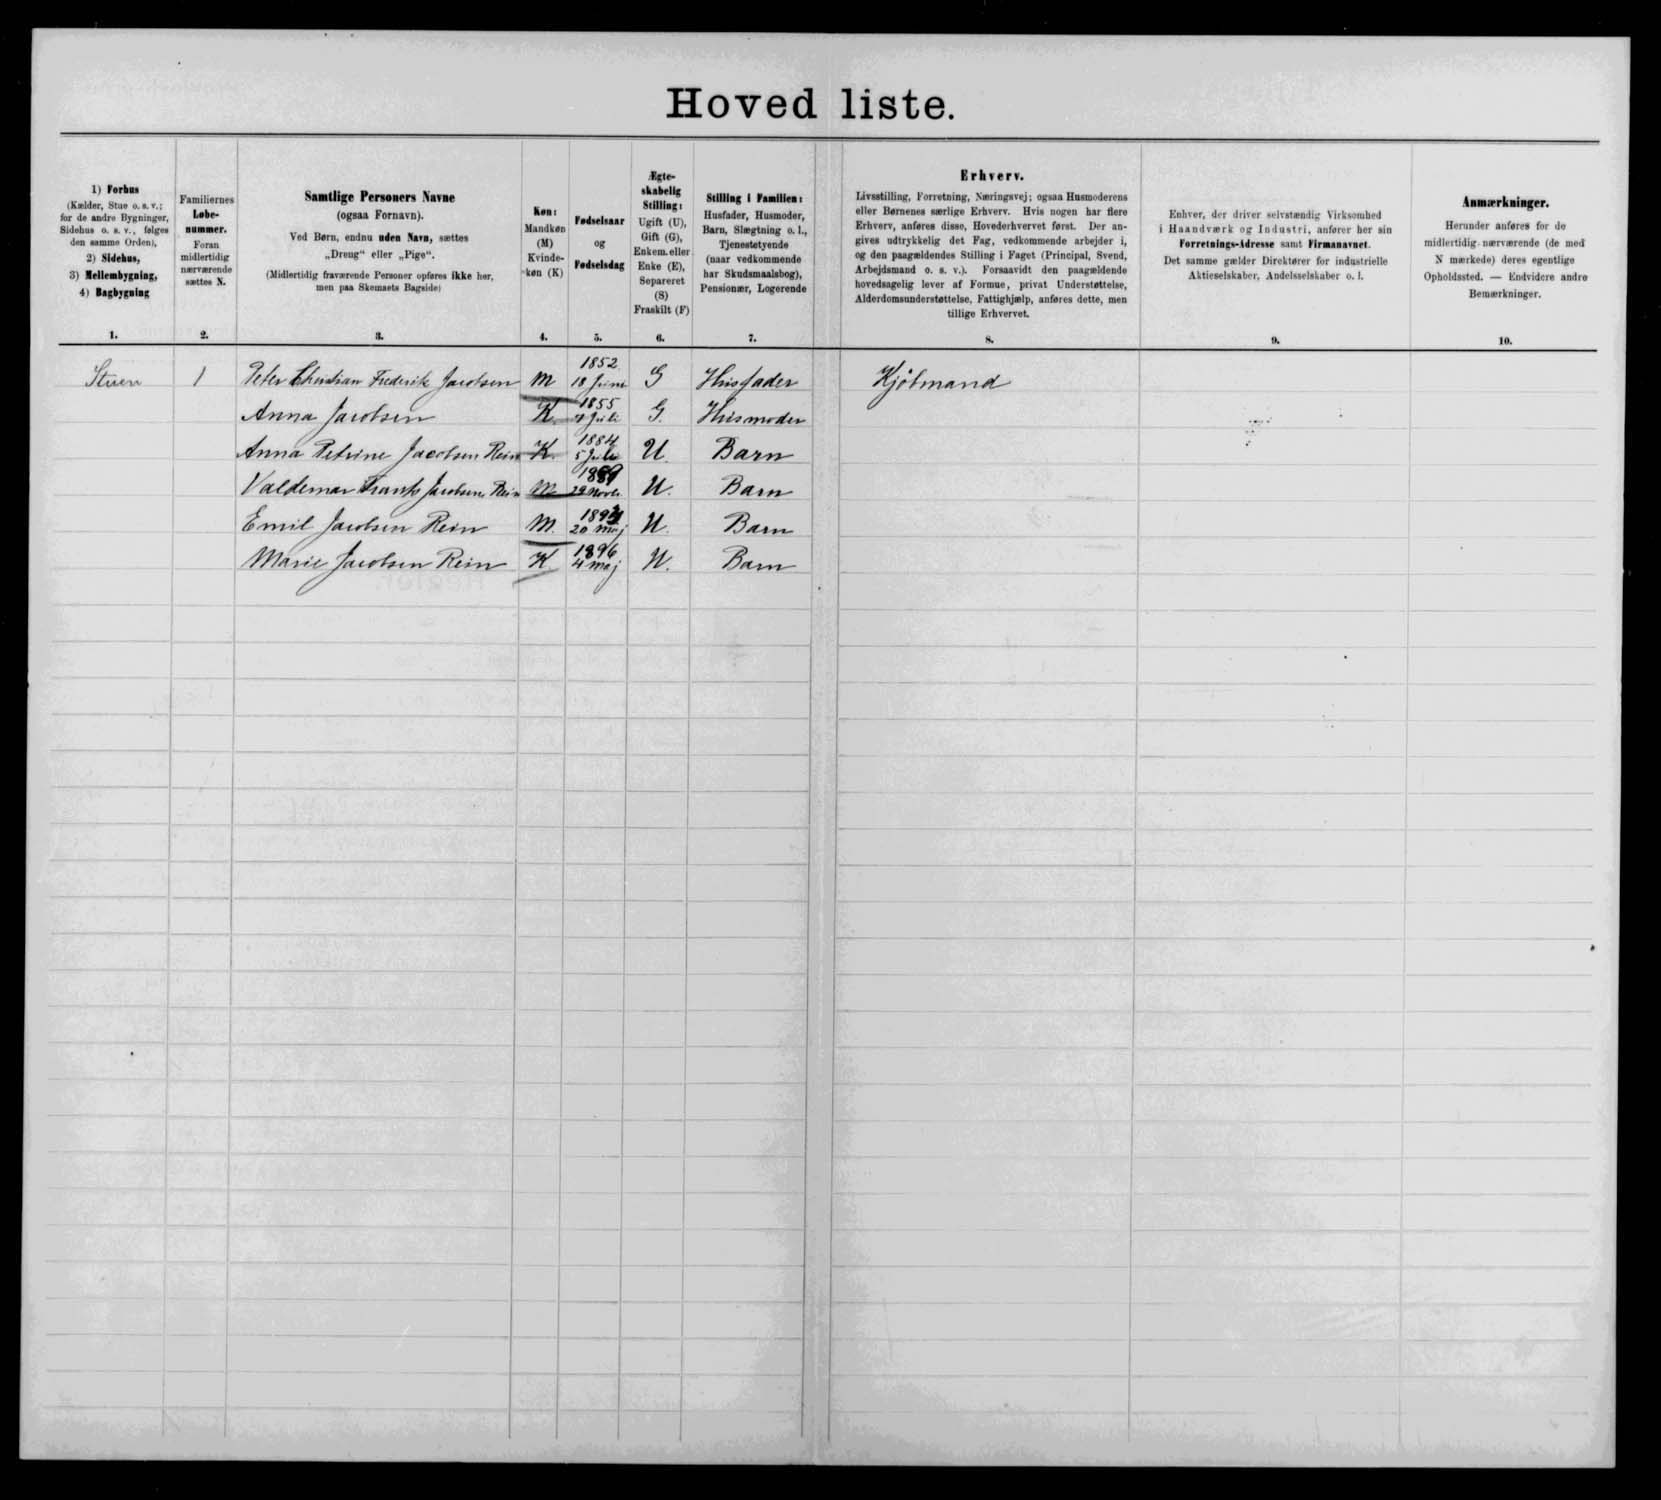 Hoved liste.
1) Forhus
(Kælder, Stue o. s. v.;
for de andre Bygninger,
Sidehus o. s. v., følges
den samme Orden),
2) Sidehus,
3) Mellembygning,
4) Bagbygning
1.
Familiernes
Løbe-
nummer.
Foran
midlertidig
nærværende
sættes N.
2.
Samtlige Personers Navne
(ogsaa Fornavn).
Ved Børn, endnu uden Navn, sættes
„Dreng“ eller „Pige“.
(Midlertidig fraværende Personer opføres ikke her,
men paa Skemaets Bagside)
3.
Køn:
Mandkøn
(M)
Kvinde-
køn (K)
4.
Fødselsaar
og
Fødselsdag
5.
Ægte-
skabelig
Stilling:
Ugift (U),
Gift (G),
Enkem. eller
Enke (E),
Separeret
(S)
Fraskilt (F)
6.
Stilling i Familien:
Husfader, Husmoder,
Barn, Slægtning o. l.,
Tjenestetyende
(naar vedkommende
har Skudsmaalsbog),
Pensionær, Logerende
7.
Erhverv.
Livsstilling, Forretning, Næringsvej; ogsaa Husmoderens
eller Børnenes særlige Erhverv. Hvis nogen har flere
Erhverv, anføres disse, Hovederhvervet først. Der an-
gives udtrykkelig det Fag, vedkommende arbejder i,
og den paagældendes Stilling i Faget (Principal, Svend,
Arbejdsmand o. s. v.). Forsaavidt den paagældende
hovedsagelig lever af Formue, privat Understøttelse,
Alderdomsunderstøttelse, Fattighjælp, anføres dette, men
tillige Erhvervet.
8.
Enhver, der driver selvstændig Virksomhed
i Haandværk og Industri, anfører her sin
Forretnings-Adresse samt Firmanavnet.
Det samme gælder Direktører for industrielle
Aktieselskaber, Andelsselskaber o. l.
9.
Anmærkninger.
Herunder anføres for de
midlertidig nærværende (de med
N mærkede) deres egentlige
Opholdssted. — Endvidere andre
Bemærkninger.
10.
Stuen 1 Peter Christian Frederik Jacobsen M 1852 18 Juni G Husfader Kjøbmand
Anna Jacobsen K 1855 Juli G. Husmoder
Anna Petrine Jacobsen Rein K. 1884 5 Juli U. Barn
Valdemar Jacobsen Rein M 1889 Novb. U. Barn
Emil Jacobsen Rein M. 20 Maj U. Barn
Marie Jacobsen Rein K. 1896 4 Maj U. Barn